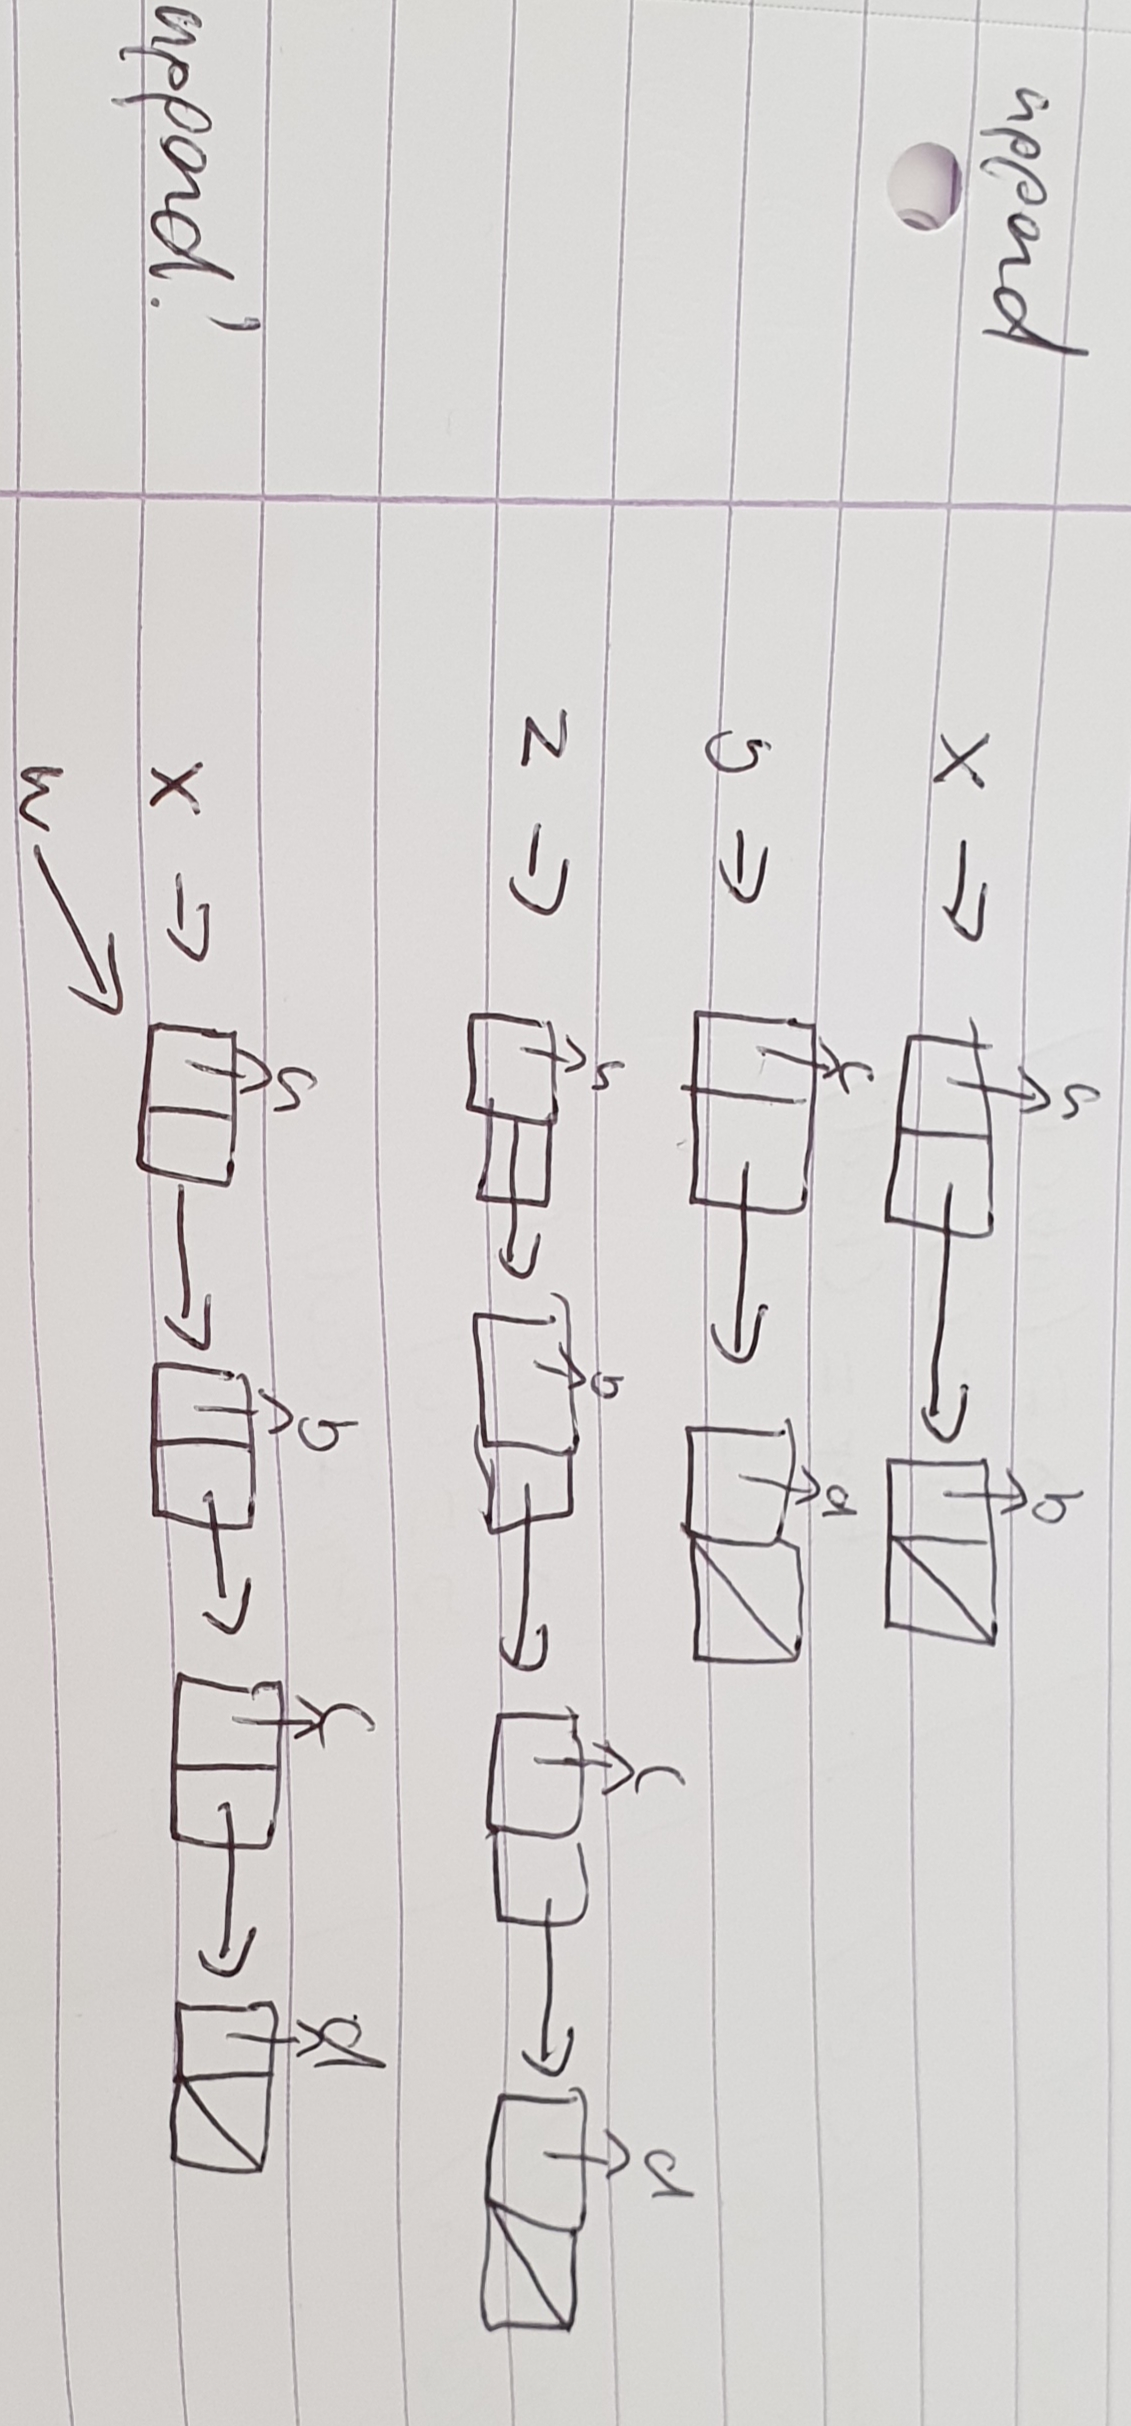 append
x → a b
y → c d
z → a b c d
append!
x → a b c d
w